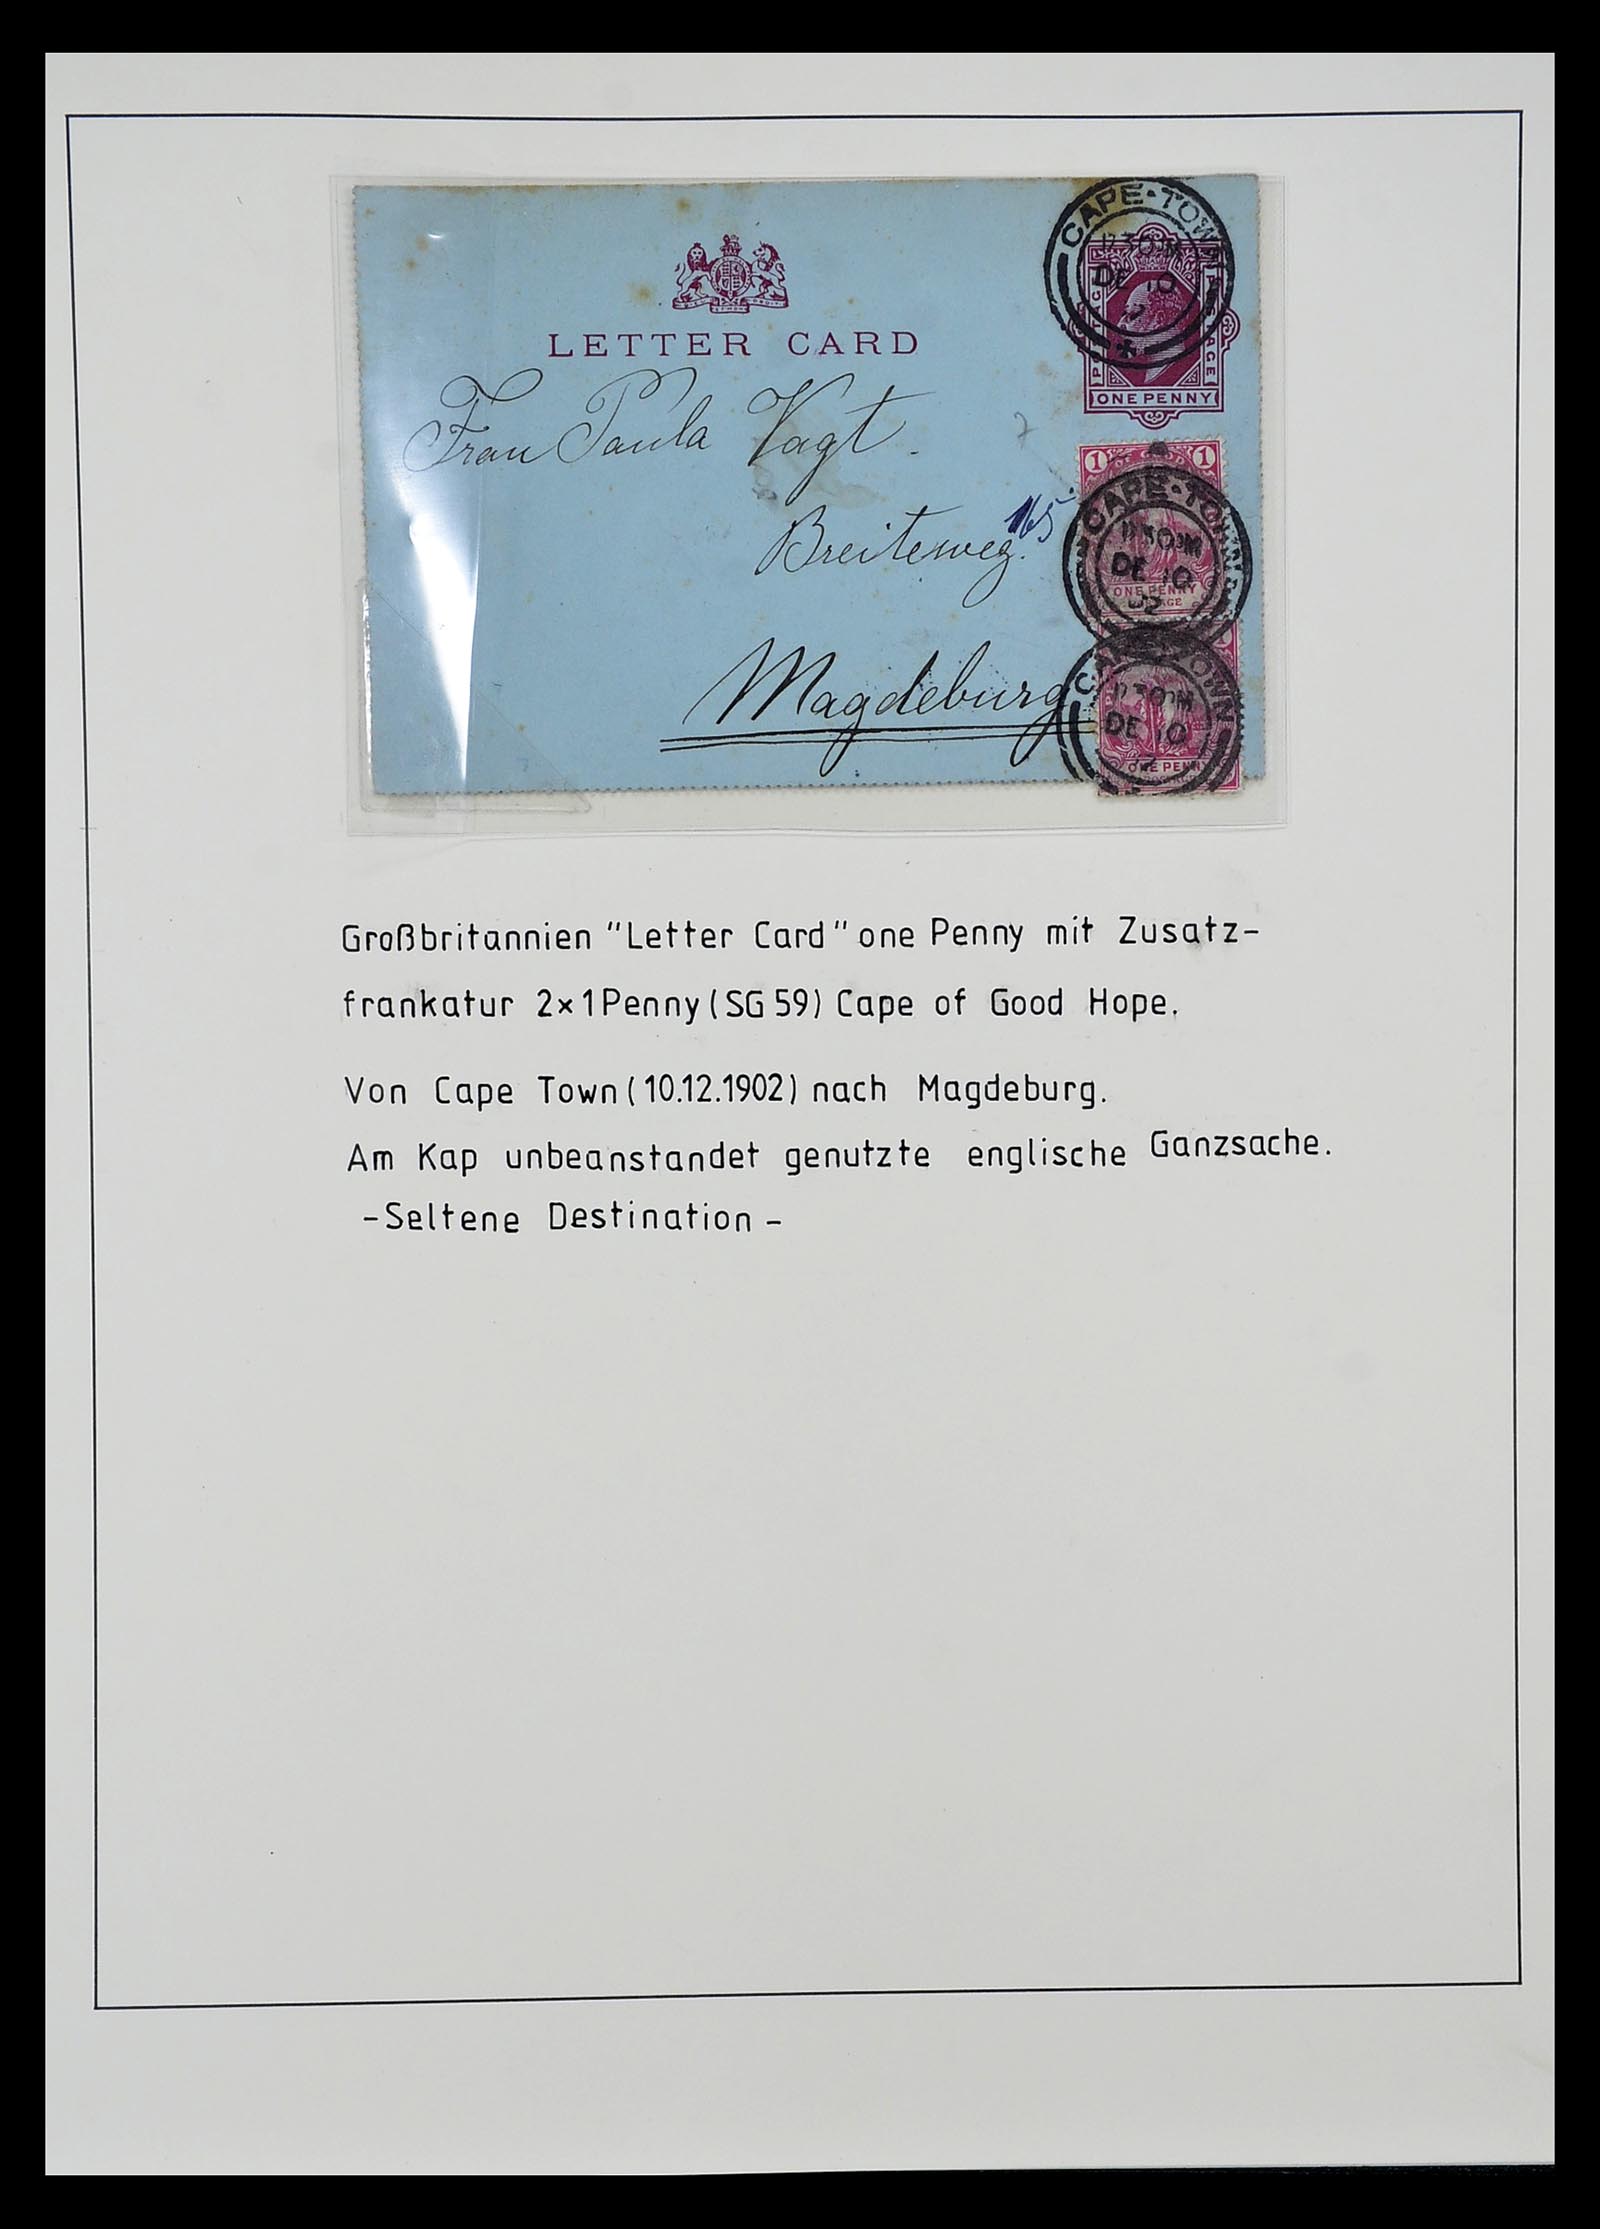 CAPE·TOWN
DE 10
LETTER CARD
ONE PENNY
Frau Paula Vagt.
1 1
Breiteweg. 165
CAPE·TOWN
DE 10
02
ONE PENNY
Magdeburg
TOWN
DE 10
ONE PENNY
Großbritannien "Letter Card" one Penny mit Zusatz-
frankatur 2×1 Penny (SG 59) Cape of Good Hope.
Von Cape Town (10.12.1902) nach Magdeburg.
Am Kap unbeanstandet genutzte englische Ganzsache.
-Seltene Destination-